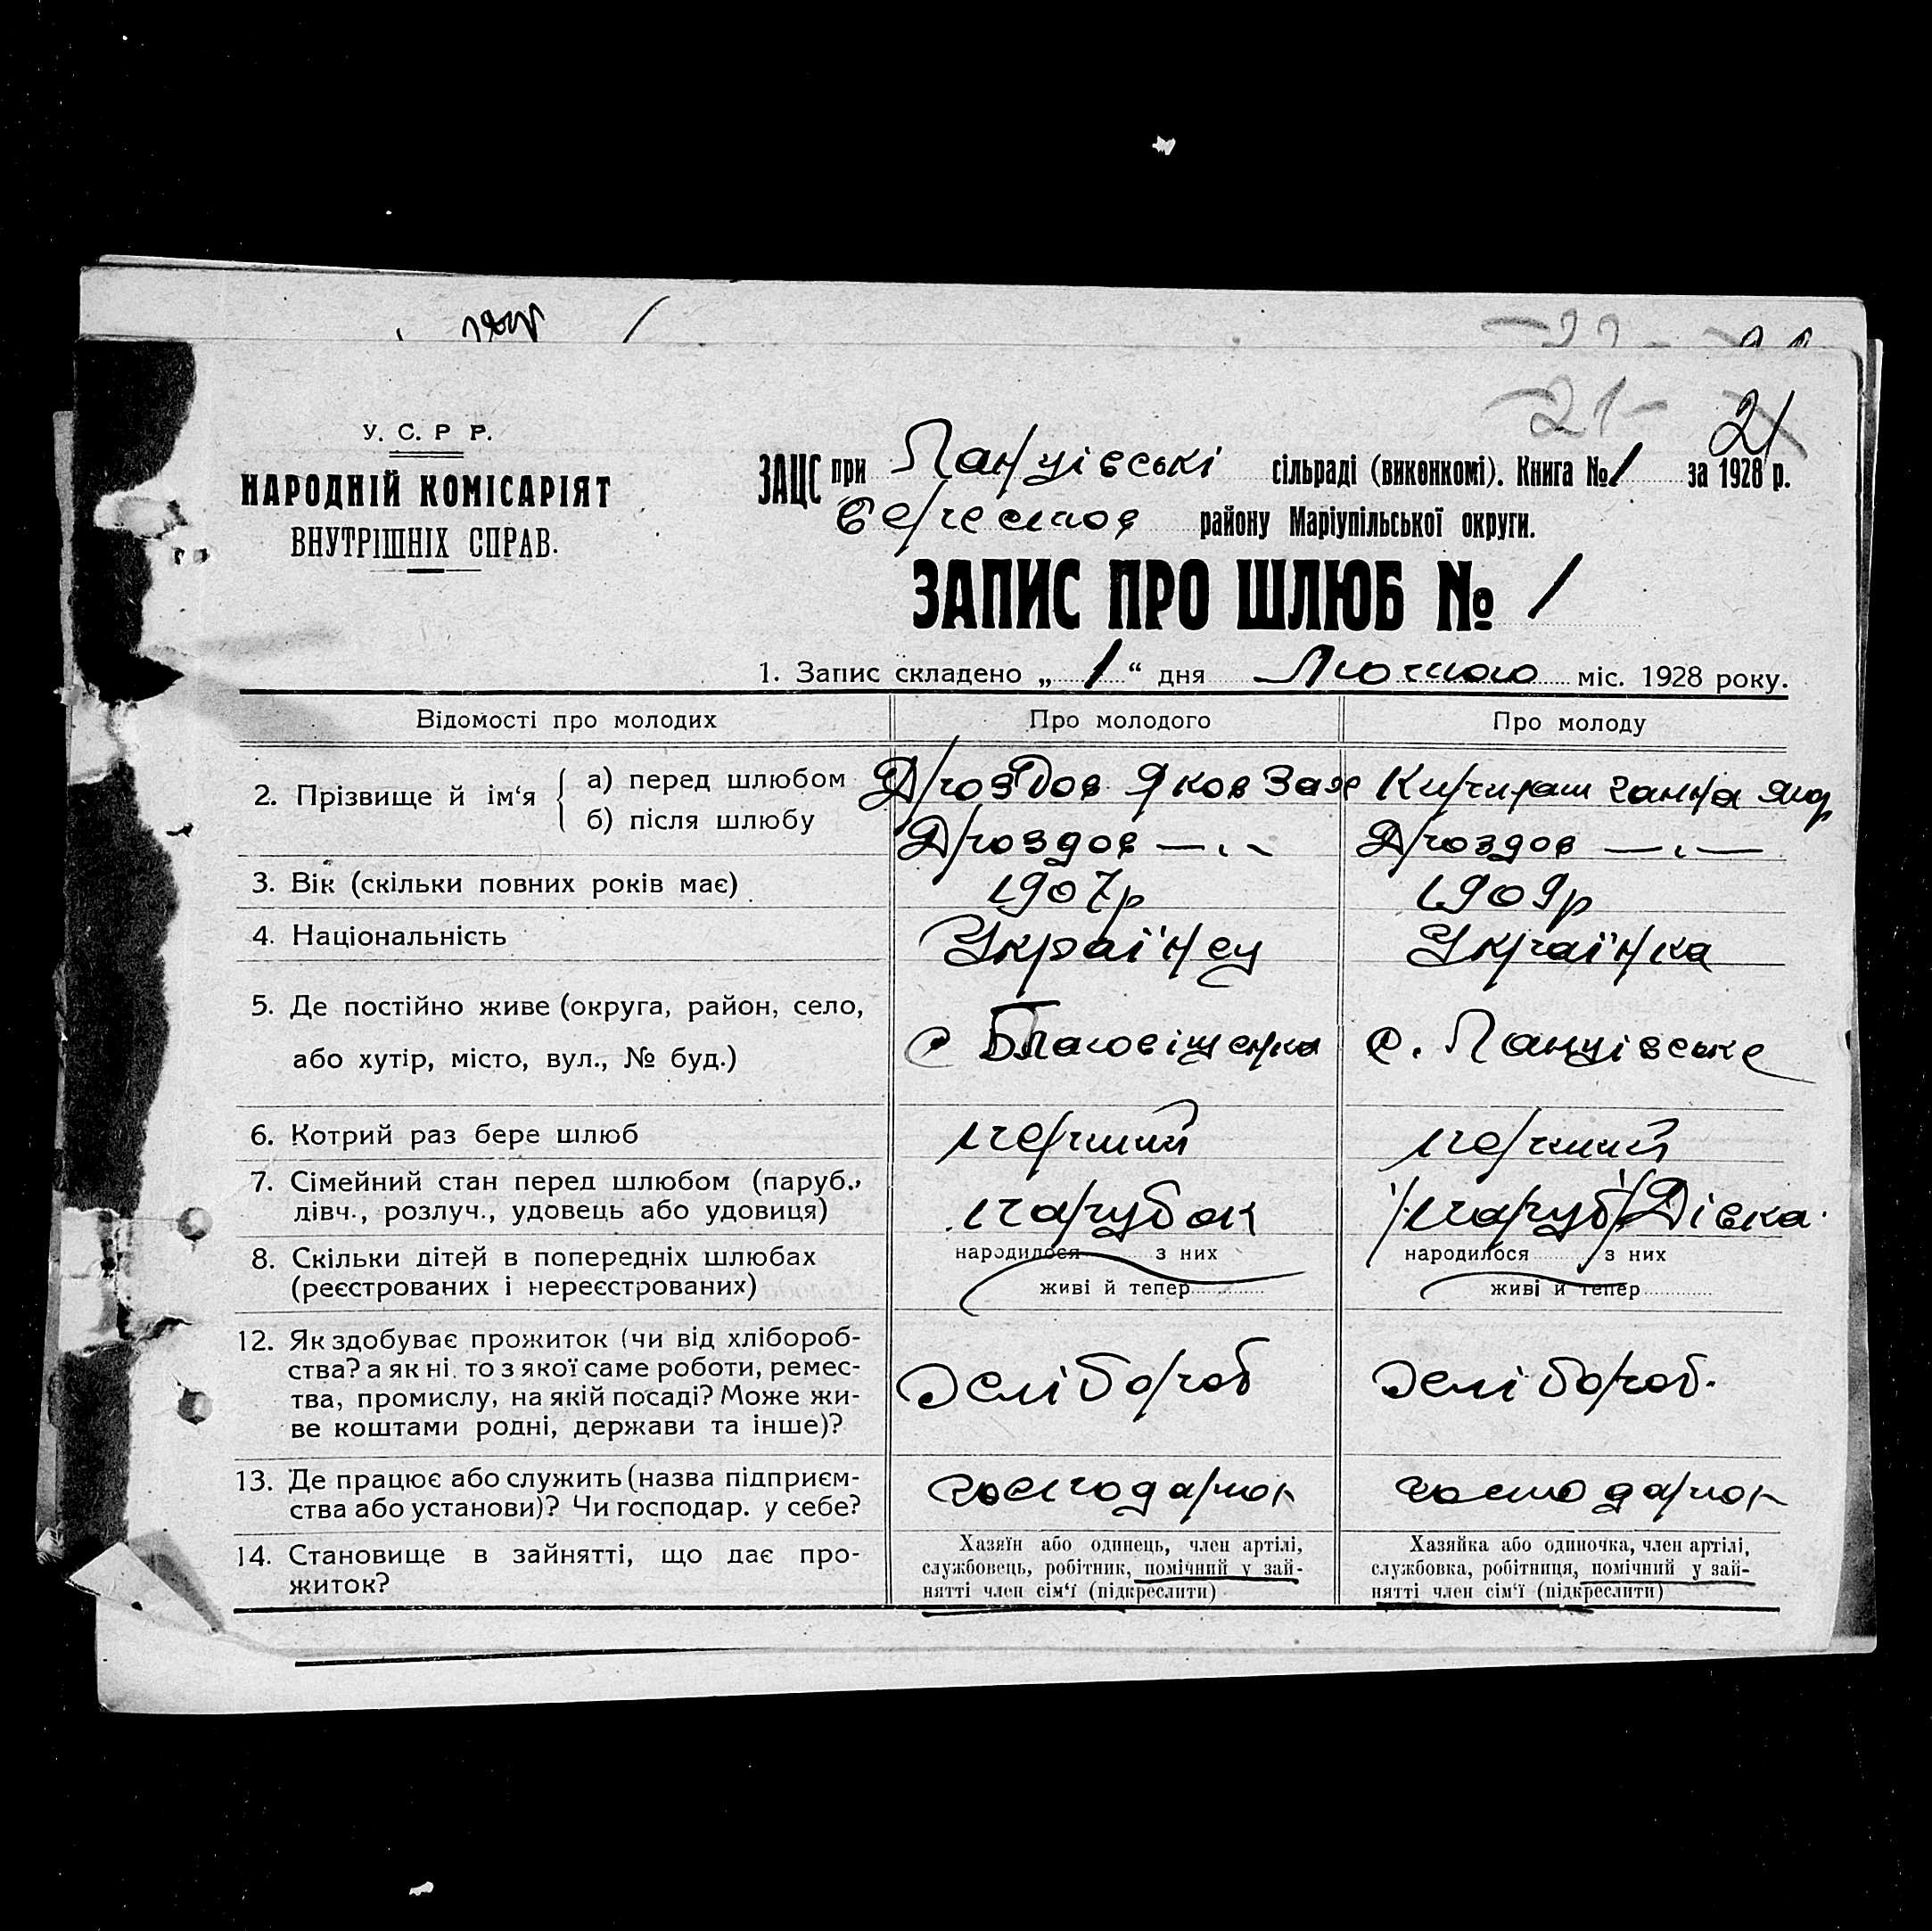 21-
21
У. С. Р Р.
НАРОДНІЙ КОМІСАРІЯТ
ВНУТРІШНІХ СПРАВ.
ЗАЦС при Ланцівські сільраді (виконкомі). Книга № 1 за 1928 р.
Берестов району Маріупільської округи.
ЗАПИС ПРО ШЛЮБ № 1
1. Запис складено „ 1 “ дня Лютого міс. 1928 року.
Відомості про молодих Про молодого Про молоду
2. Прізвище й ім‘я а) перед шлюбом Дроздов Яков Зах Ганна
б) після шлюбу Дроздов —.— Дроздов —.—
3. Вік (скільки повних років має) 1907р 1909р
4. Національність Украї'нец Украї'нка
5. Де постійно живе (округа, район, село,
або хутір, місто, вул., № буд.) с Благовіщенка с. Ланцівське
6. Котрий раз бере шлюб перший перший
7. Сімейний стан перед шлюбом (паруб.,
дівч., розлуч., удовець або удовиця) парубок /паруб/ Дівка.
8. Скільки дітей в попередніх шлюбах народилося з них народилося з них
(реєстрованих і нереєстрованих) живі й тепер живі й тепер
12. Як здобуває прожиток (чи від хлібороб-
ства? а як ні. то з якої саме роботи, ремес-
тва, промислу, на якій посаді? Може жи-
ве коштами родні, держави та інше)? Хлібороб Хлібороб.
13. Де працює або служить (назва підприєм-
ства або установи)? Чи господар. у себе? господарюк господарюк
14. Становище в зайнятті, що дає про-
житок?
Хазяїн або одинець, член артілі,
службовець, робітник, помічний у зай-
нятті член сім‘ї (підкреслити)
Хазяйка або одиночка, член артілі,
службовка, робітниця, помічний у зай-
нятті член сім‘ї (підкреслити)